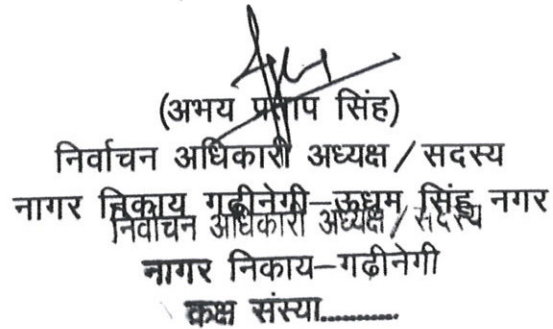 (अभय प्रताप सिंह)
निर्वाचन अधिकारी अध्यक्ष / सदस्य
नागर निकाय गढीनेगी–ऊधम सिंह नगर
निर्वाचन अधिकारी अध्यक्ष / सदस्य
नागर निकाय–गढीनेगी
कक्ष संस्या............